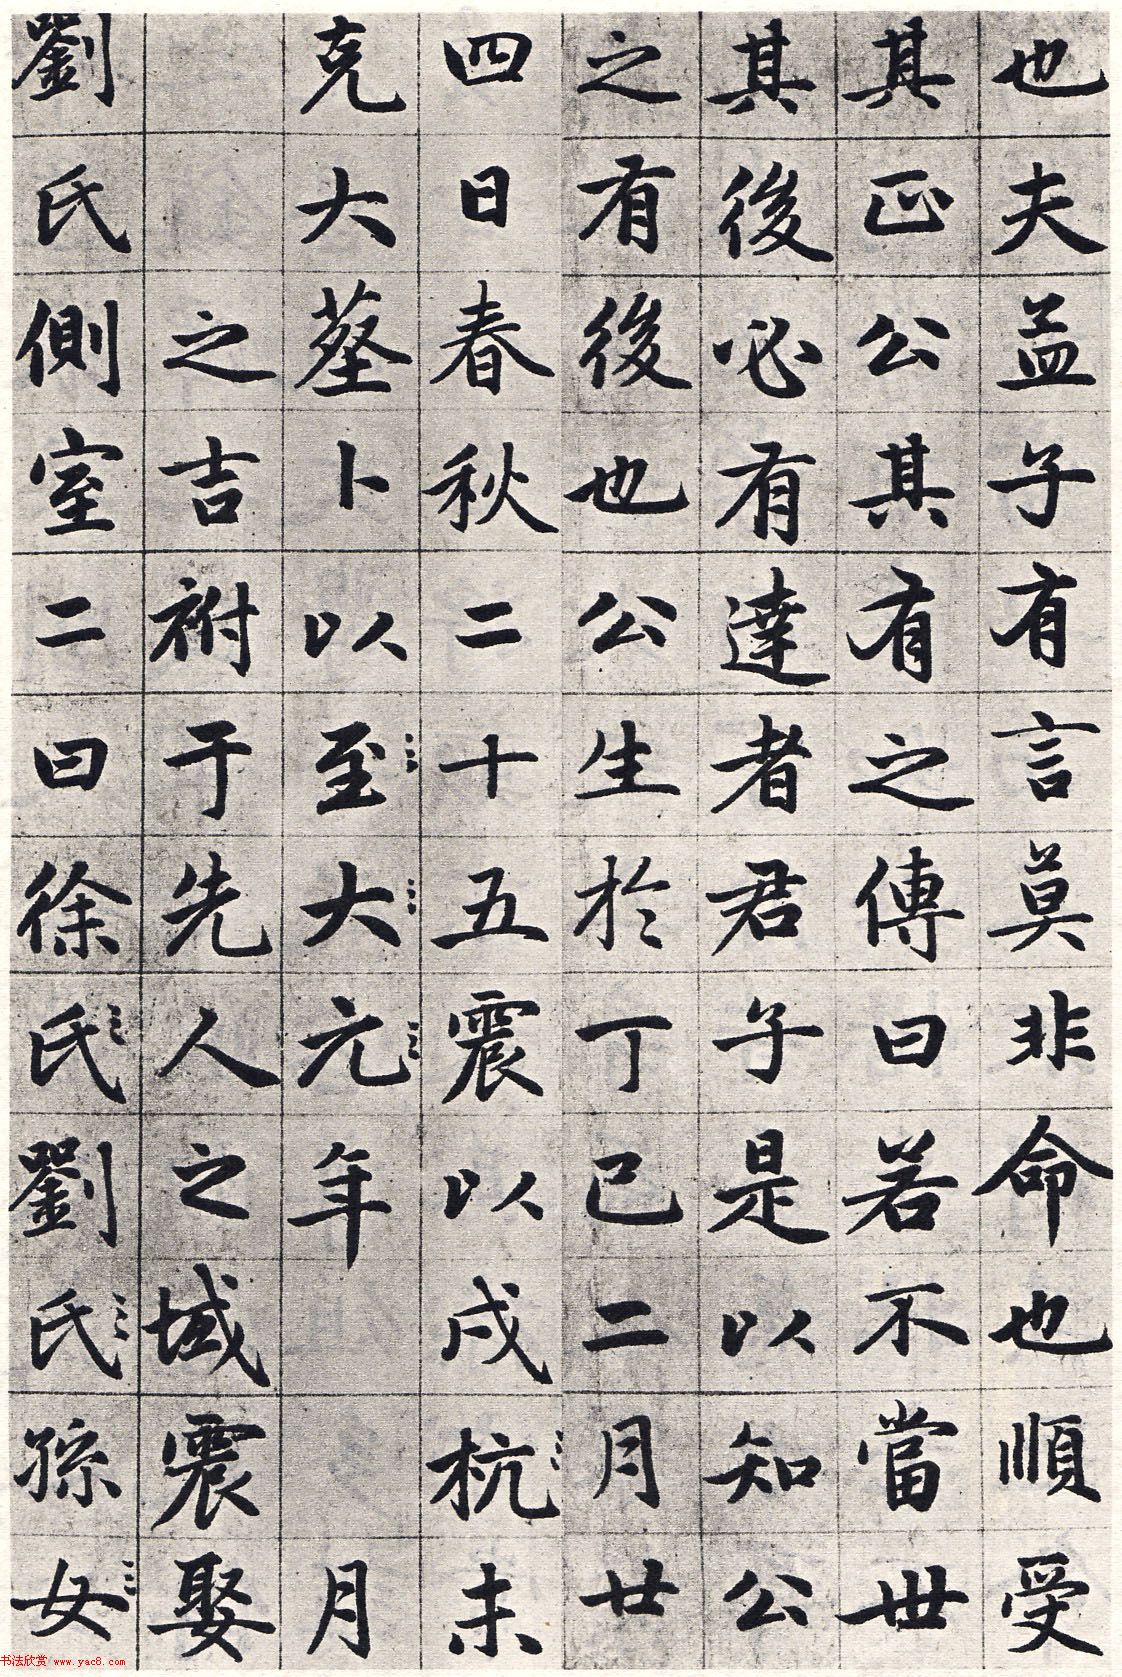 也夫孟子有言莫非命也順受
其正公其有之傳曰若不當世
其後必有達者君子是以知公
之有後也公生於丁巳二月廿
四日春秋二十五震以戌杭未
克大葬卜以至大元年月
之吉祔于先人之域震娶
劉氏側室二曰徐氏劉氏孫女
书法欣赏 www.yac8.com